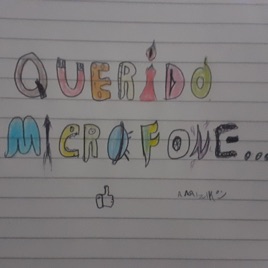 QUERIDO
MICROFONE...